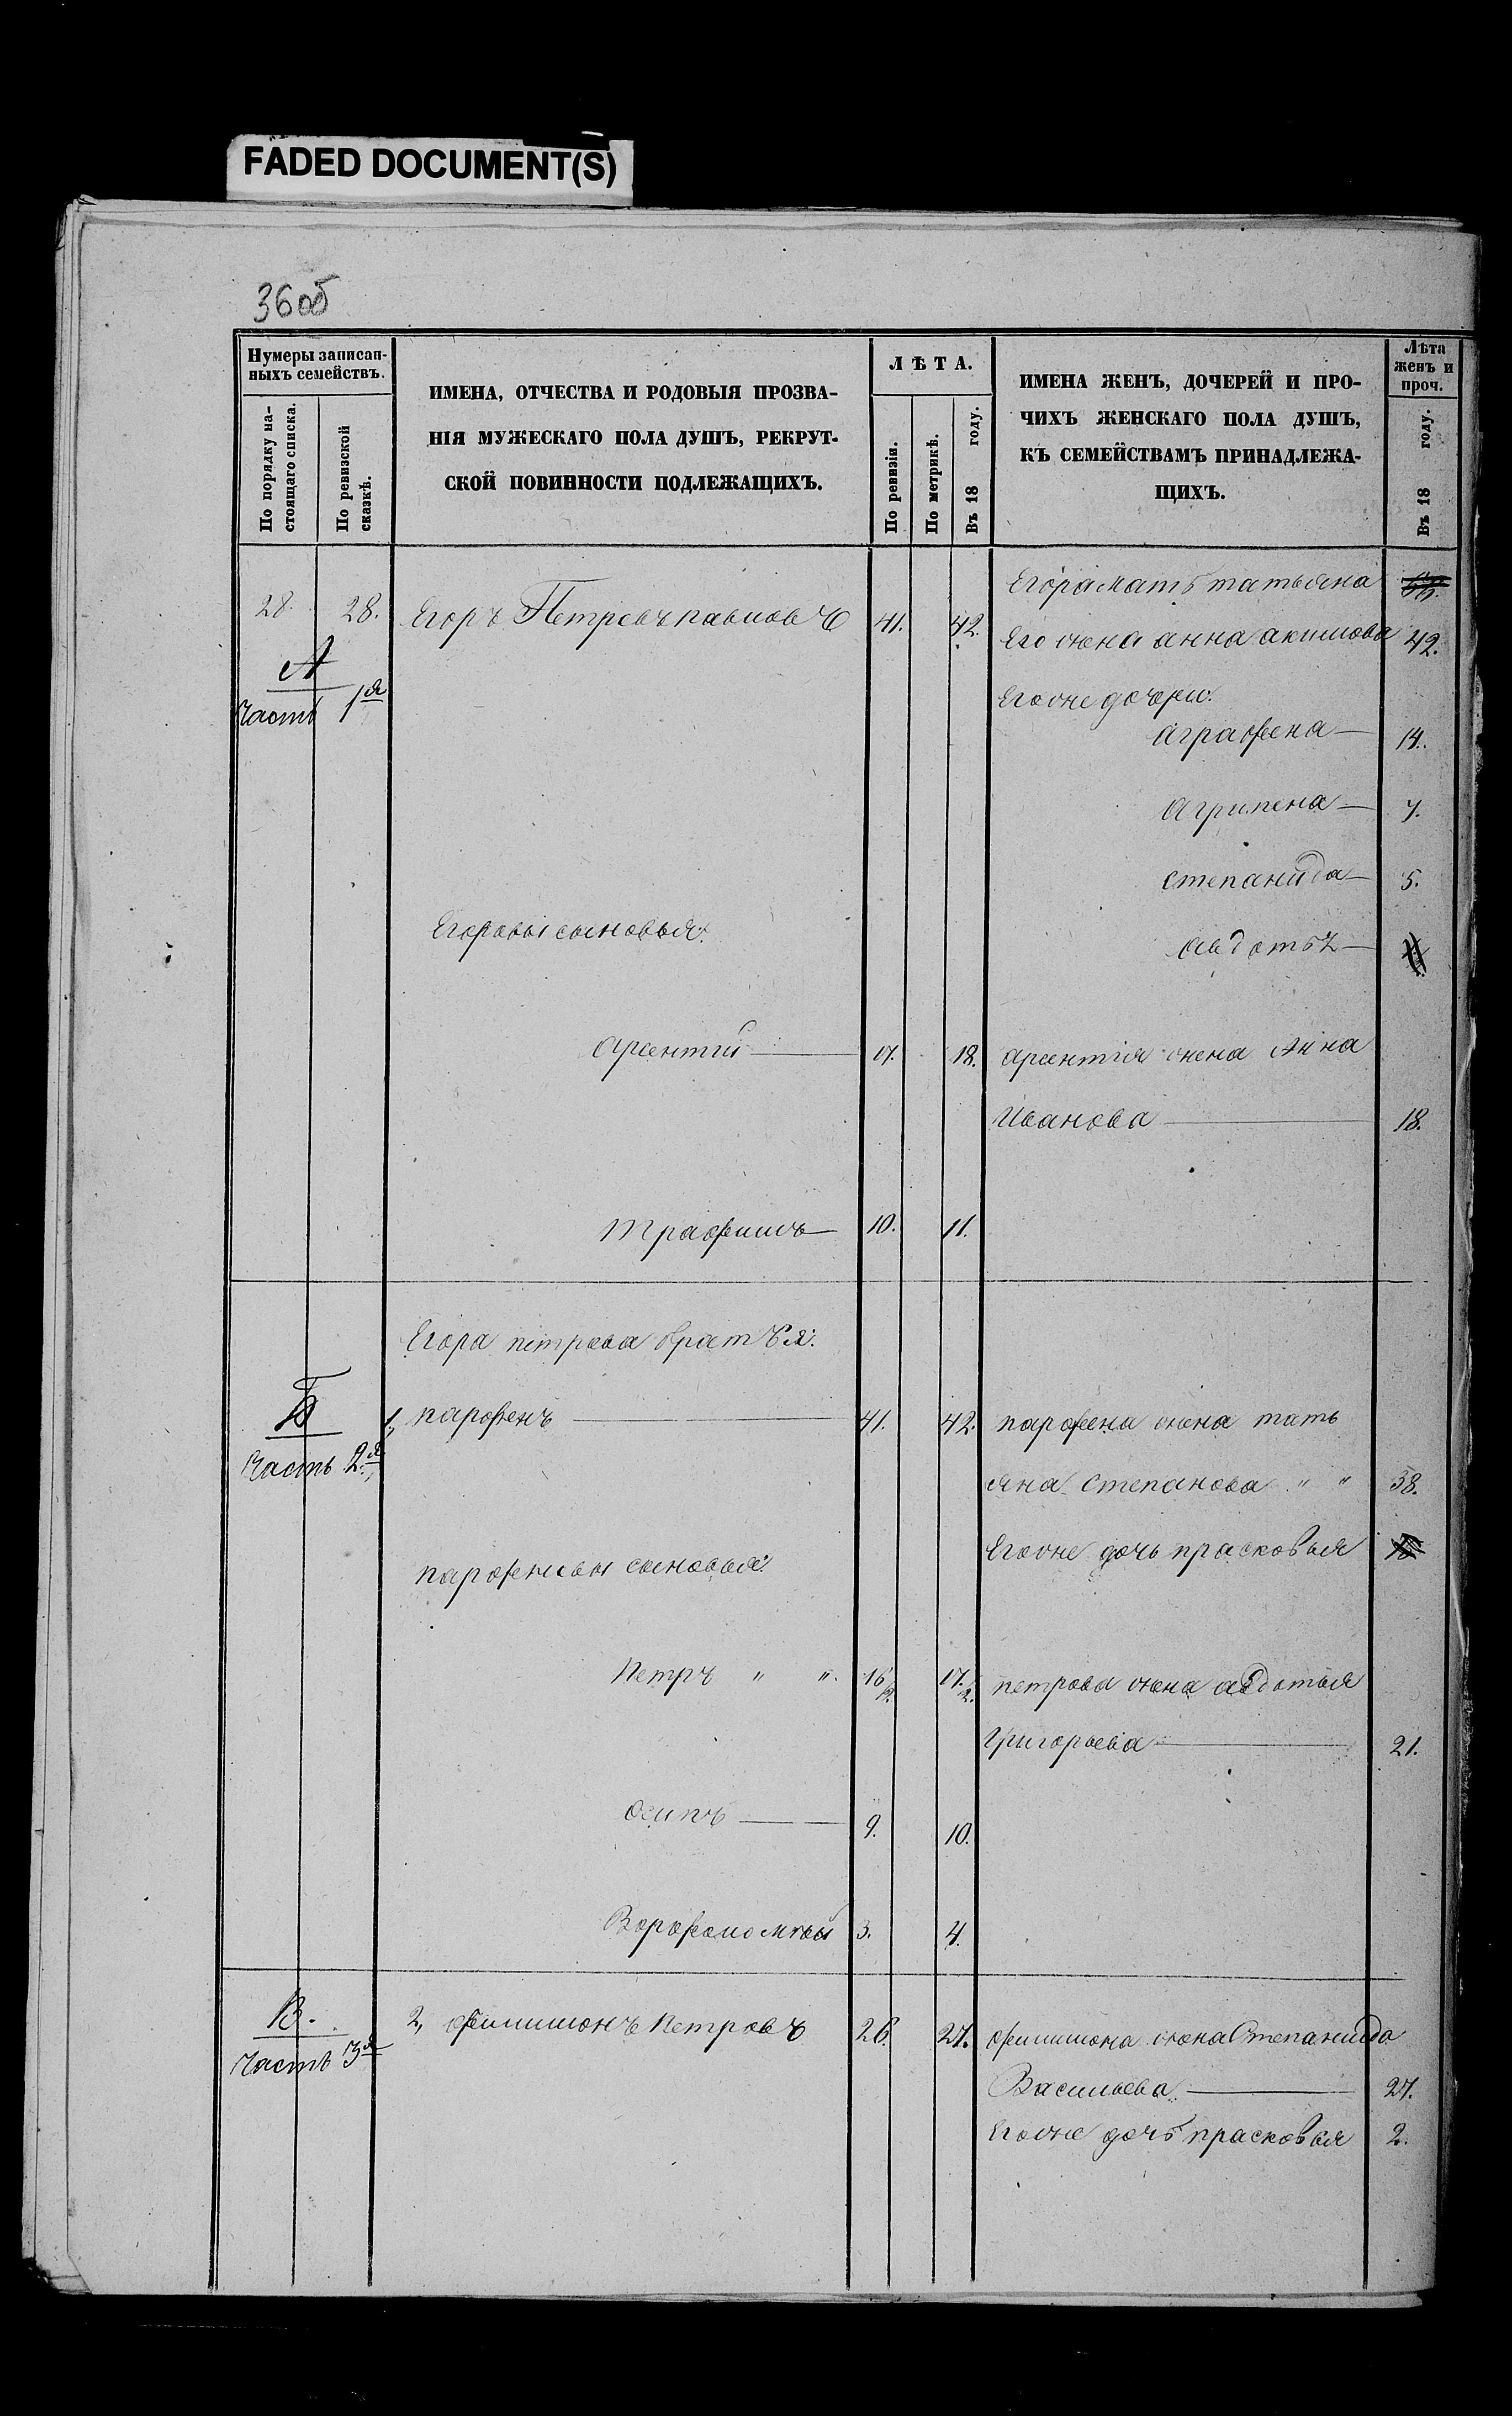 FADED DOCUMENT(S)
36об
Нумеры записан-
ныхъ семействъ.
По порядку на-
стоящаго списка.
По ревизской
сказкѣ.
ИМЕНА, ОТЧЕСТВА И РОДОВЫЯ ПРОЗВА-
НІЯ МУЖЕСКАГО ПОЛА ДУШЪ, РЕКРУТ-
СКОЙ ПОВИННОСТИ ПОДЛЕЖАЩИХЪ.
ЛѢТА.
По ревизіи.
По метрикѣ.
Въ 18 году.
ИМЕНА ЖЕНЪ, ДОЧЕРЕЙ И ПРО-
ЧИХЪ ЖЕНСКАГО ПОЛА ДУШЪ,
КЪ СЕМЕЙСТВАМЪ ПРИНАДЛЕЖА-
ЩИХЪ.
Лѣта
женъ и
проч.
Въ 18 году.
Егора мать татьяна
28. 28. Егоръ Петровъ павловъ 41. 42. Его жена анна акимова 42.
А
Часть 1я
Егоже дочери:
аграфена — 14.
Агрипена — 7.
степанида — 5.
Егоровы сыновья:
Авдотьѣ —
Арсентий — 17. 18. арсентiя жена Анна
Иванова — 18.
Трафимъ — 10. 11.
Егора петрова братъя:
Б 1, парфенъ — 41. 42. парфена жена тать
Часть 2.я
яна степанова " " 38.
Егоже дочь прасковья
парфеновы сыновья:
Петръ " " 16 1/2 17. 1/2. петрова жена авдотья
Григорьева — 21.
осипъ — 9. 10.
Ворфоломѣй 3. 4.
В. 2, филимонъ Петровъ 26. 27. филимона жена Степанида
Часть 3я
Васильева — 27.
Егоже дочь прасковья 2.